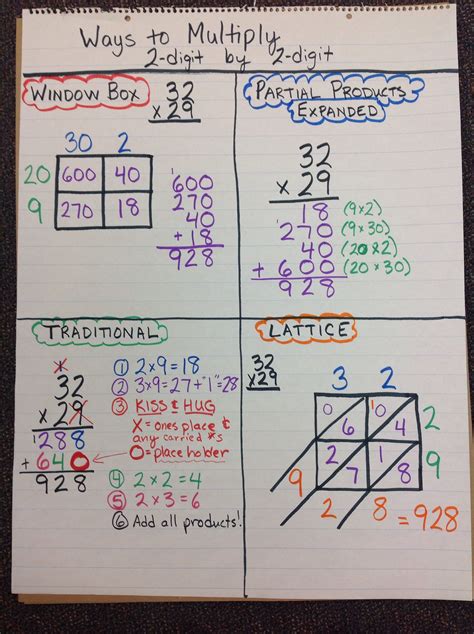 Ways to Multiply
2-digit by 2-digit
WINDOW BOX
32
x 29
30 2
20 600 40
9 270 18
1
600
270
40
+ 18
928
PARTIAL PRODUCTS
EXPANDED
32
x 29
18 (9x2)
270 (9x30)
40 (20x2)
+ 600 (20x30)
928
TRADITIONAL
1
32
x 29
1288
+ 640
928
① 2x9=18
② 3x9=27+"1"=28
③ KISS & HUG
X = ones place &
any carried #s
O = place holder
④ 2x2=4
⑤ 2x3=6
⑥ Add all products!
LATTICE
32
x29
3 2
0 6 1 0 4 2
2 7 1 8 9
9 2 8 = 928